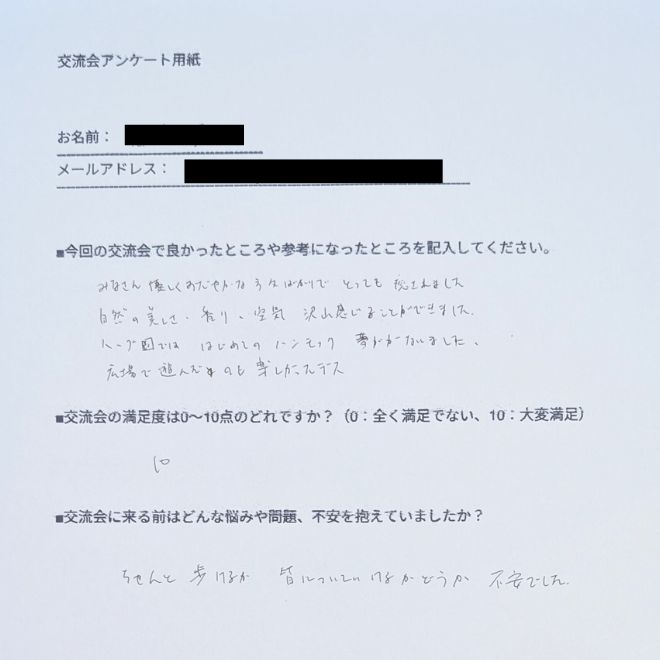 交流会アンケート用紙
お名前：
メールアドレス：
■今回の交流会で良かったところや参考になったところを記入してください。
みなさん 優しくおだやかな方々ばかりで とっても 癒されました
自然の美しさ、香り、空気 沢山感じることができました。
ハーブ園では はじめてのハンモック 夢がかないました、
広場で遊んだのも 楽しかったデス
■交流会の満足度は0〜10点のどれですか？（0：全く満足でない、10：大変満足）
10
■交流会に来る前はどんな悩みや問題、不安を抱えていましたか？
ちゃんと 歩けるか 皆についていけるかどうか 不安でした。